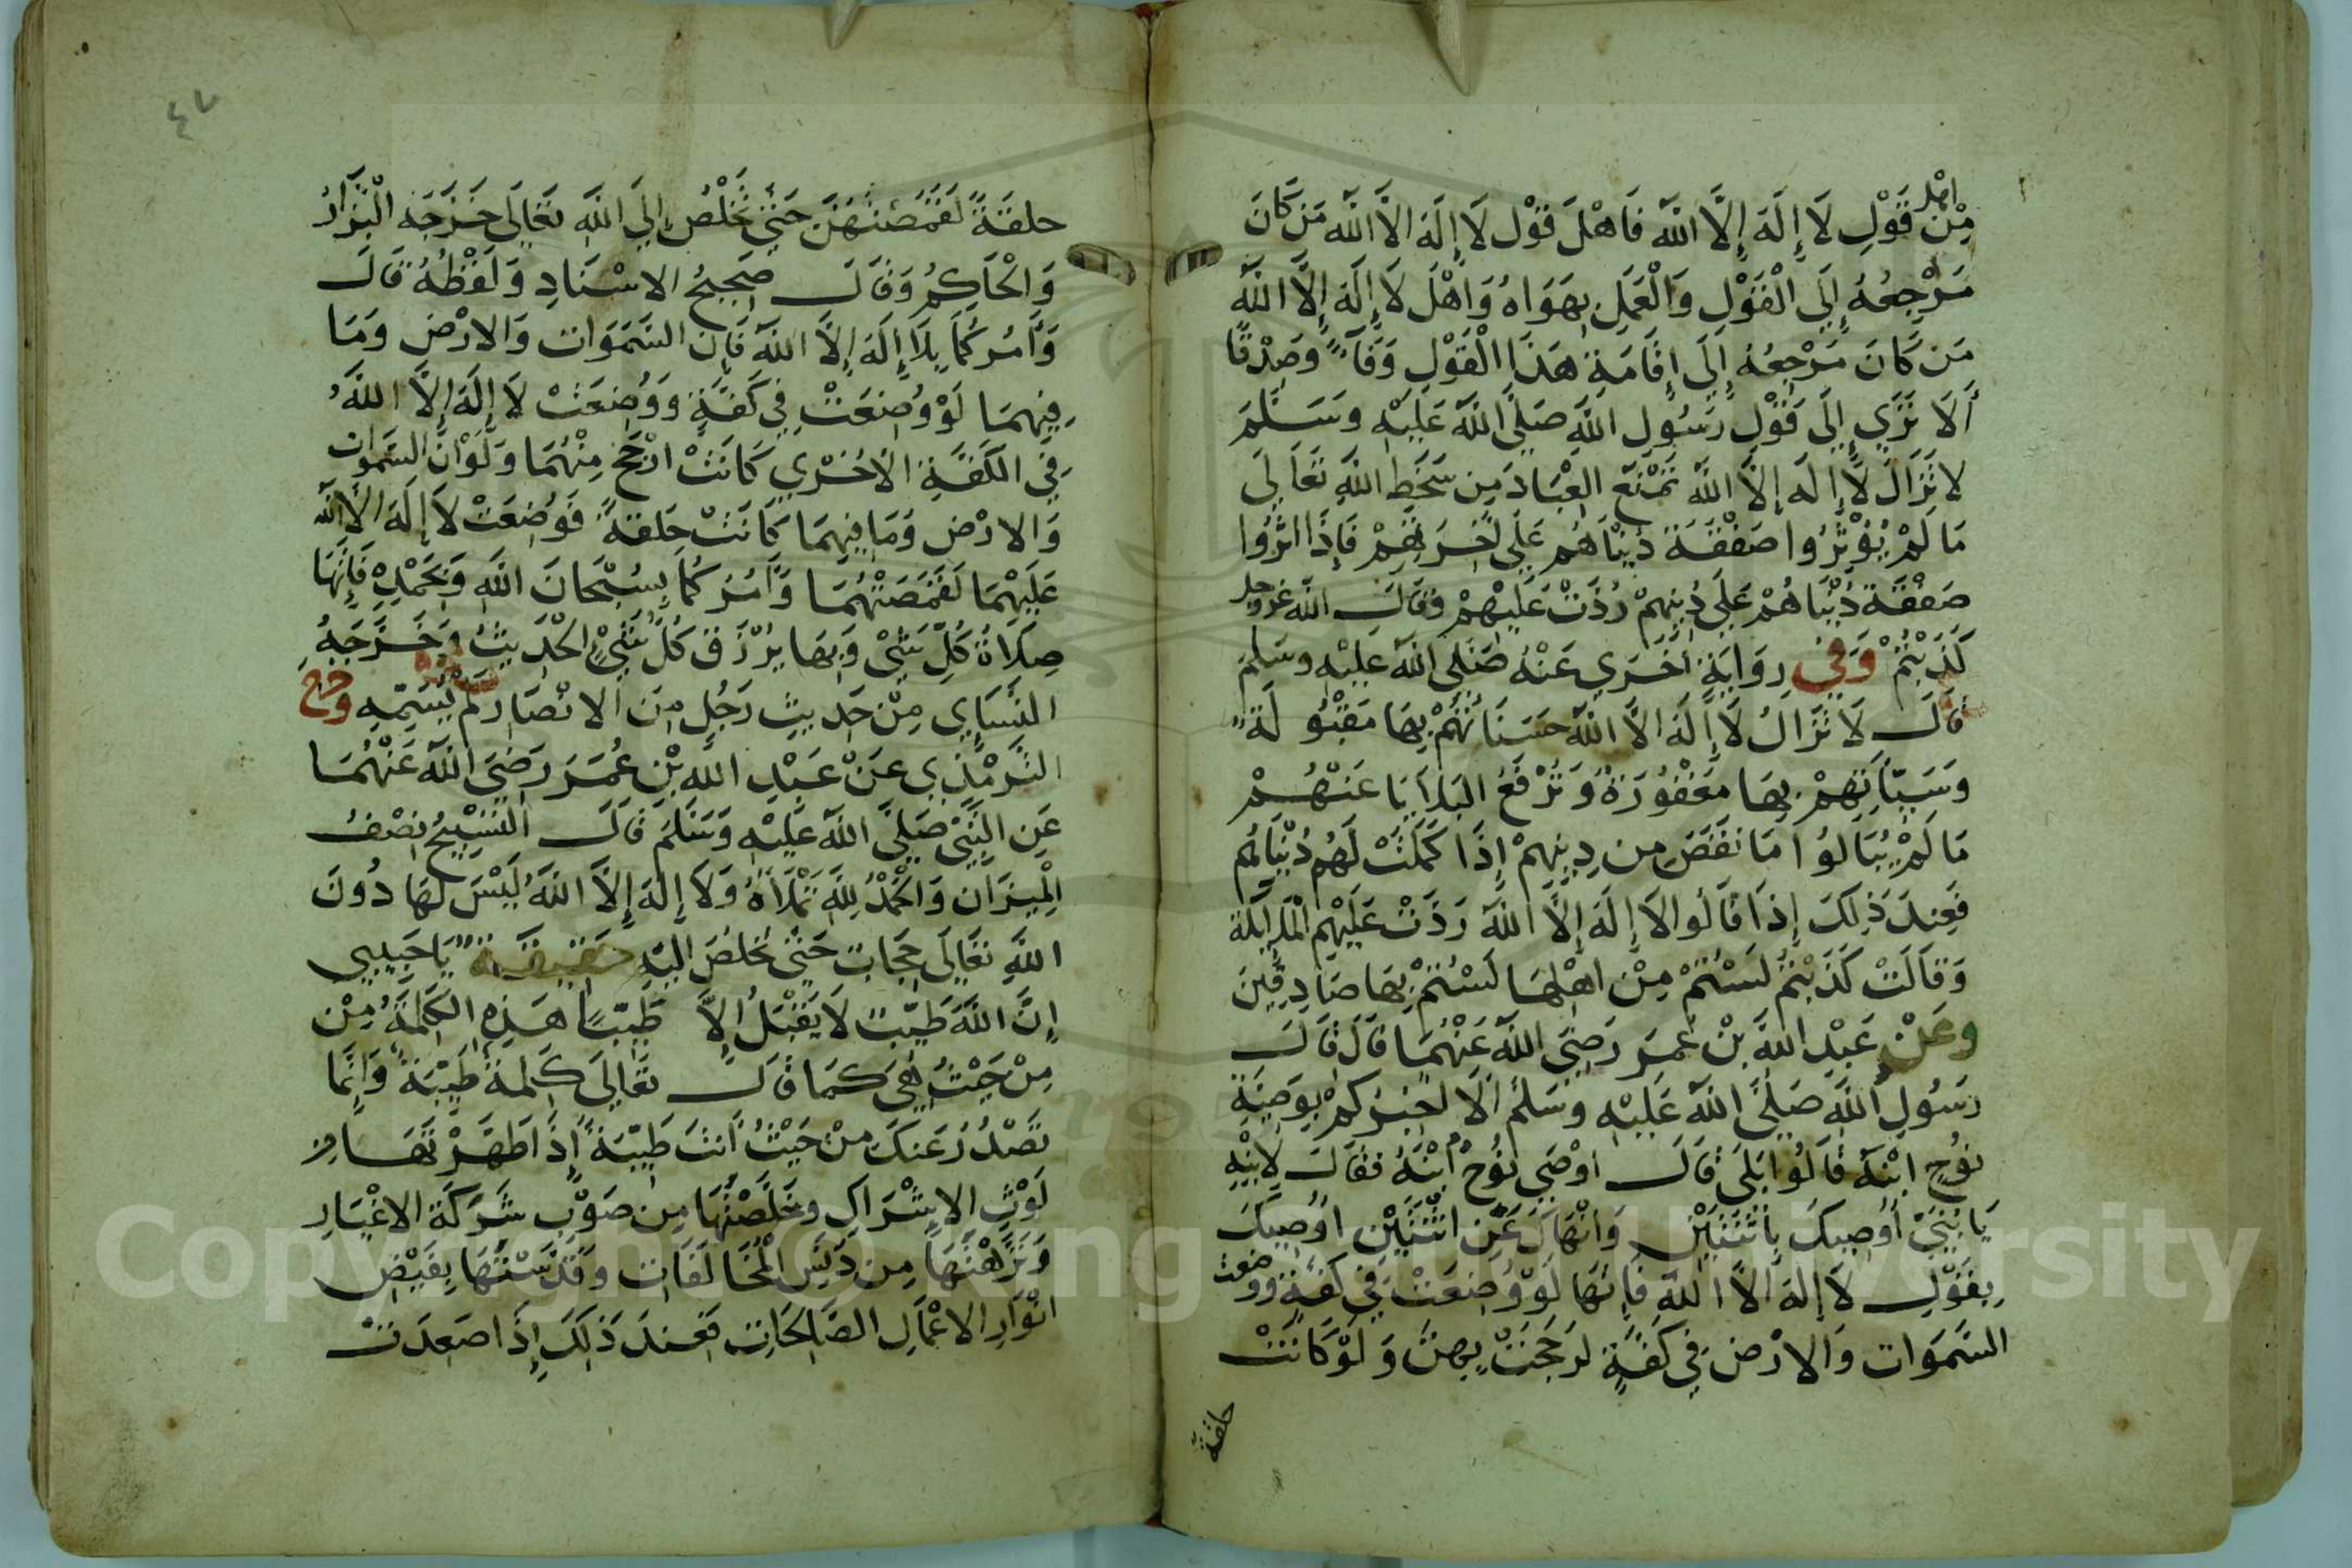 من اهل قَوْلِ لَا إِلَهَ إِلَّا اللَّه فَاهْلَ قَوْل لَا إِلَهَ الَّا اللَّه مَن كَانَ
مَرْجِعُهُ إِلَى الْقَوْلِ وَالْعَمَلِ بِهَوَاهُ وَاهْلَ لَا إِلَهَ إِلَّا اللَّه
مَن كَانَ مَرْجِعُهُ إِلَى إِقَامَةِ هَذَا الْقَوْلِ وَفَآءً وصَدْقًا
أَلَا تَرَي إِلَى قَوْلِ رَسُولِ اللَّه صَلَّى اللَّه عَلَيْهِ وَسَلَّمَ
لا تَزَالَ لَا إِلَه إِلَّا اللَّه تَمْنَع العِبَادَ مِن سَخَطِ اللَّهِ تَعَالَى
مَا لَمْ يُؤْثِرُوا صَفْقَةَ دُنْيَاهُم عَلَى اخرتهم فَإِذَا اثرُوا
صَفْقَة دُنْيَاهُمْ عَلَى دِينِهِمْ رُدَّتْ عَلَيْهِمْ وقَالَ اللَّه عز وجل
كَذَبْتُمْ وَفِي رِوَايَةٍ أُخْرَي عَنْهُ صَلَى اللَّه عَلَيْهِ وسَلم
قَالَ لَا تَزَالُ لَا إِلَهَ الَّا اللَّه حسناتهم بِهَا مَقْبُولَةً
وَسَيِّآتِهِمْ بِهَا مَغْفُورَةً وَتُرْفَعُ البَلَايَا عَنْهُمْ
مَا لَمْ يُبَالُوا مَا نَقَصَ مِن دِينِهِمْ إِذَا كَمَلَتْ لَهُم دُنْيَاهُم
فَعِندَ ذَلِكَ إِذَا قَالُوا لَا إِلَهَ إِلَّا اللَّه رَدَّتْ عَلَيْهِم الملايكة
وَقَالَتْ كَذَبْتُمْ لَسْتُمْ مِنْ اهْلِهَا لَسْتُمْ بِهَا صَادِقِينَ
وعَنْ عَبْدِ اللَّه بْن عُمَرَ رَضِيَ اللَّه عَنْهُمَا قَالَ قَالَ
رَسُولِ اللَّه صَلَّى اللَّه عَلَيْهِ وسَلم أَلَا اخبركم بِوَصِيَّةِ
نُوْحٍ ابْنه قَالُوا بَلَى قَالَ اوْصَى نُوْحٌ ابْنَهُ فقَالَ لِابْنِهِ
يَا بُنَيَّ اُوصِيكَ بِاثْنَتَيْنِ وَانْهَاكَ عَنِ اثْنَتَيْنِ اُوصِيكَ
بِقَوْلِ لَا إِلَهَ الَّا اللَّه فَإِنَهَا لَوْ وُضِعَتْ فِي كَفةٍ ووضعت
السَّمَوَات وَالارْضِ فِي كَفَّةٍ لرَجَحَتْ بِهِنَ وَلَوْ كَانَتْ
حلقة
٤٧
حلقَةً لَقَصَمَتْهُنَّ حَتَّى تَخْلُصُ إِلَى اللَّه تَعَالَى خَرَّجَهُ الْبَزَّارُ
وَالْحَاكِمُ وَقَالَ صَحِيحُ الاسْنَادِ وَلَفْظُهُ قَالَ
وَآمُرُكُمَا بِلَا إِلَهَ إِلَّا اللَّه فَإِنَ السَّمَوَات وَالارْض وَمَا
فِيهِمَا لَوْ وُضِعَتْ فِي كَفَّةٍ وَوُضِعَتْ لَا إِلَهَ إِلَّا اللَّهُ
فِي الكَفَّةِ الاخْرَي كَانَتْ ارْجَح مِنْهُمَا وَلَوْ انَّ السَّموات
وَالارْض وَمَا فِيهِمَا كَانَتْ حَلقَةً فَوُضِعَتْ لَا إِلَهَ الَّا اللَّه
عَلَيْهِمَا لَقَصَمَتْهُمَا وَآمُرُكُمَا بِسُبْحَانَ اللَّهِ وَبِحَمْدِهِ فَإِنَّهَا
صِلَاةُ كُلِّ شَيْ وَبِهَا يُرْزَق كُلُّ شَيْءٍ الحْدِيثُ وَخَرَّجَهُ
النَّسَايِي مِنْ حَدِيثِ رَجُلٍ مِنَ الانْصَارِ لَمْ يُسَمِّهِ وخرج
التِّرْمِذِي عَنْ عَبْدِ اللَّه بْنِ عُمَرَ رَضِيَ اللَّه عَنْهُمَا
عَنِ النَّبِيِّ صَلَّى اللَّه عَلَيْهِ وَسَلَّمَ قَالَ التَّسْبِيحُ نِصْفُ
الْمِيزَانِ وَالْحَمْدُ لِلَّهِ تَمْلَأهُ وَلَا إِلَهَ إِلَّا اللَّهُ لَيْسَ لَهَا دُونَ
اللَّهِ تَعَالَى حِجَابٌ حَتَّى تَخلصَ اليْهِ حَقِيقَةٌ يَا حَبِيبِي
إِنَّ اللَّهَ طَيِّبٌ لَا يَقْبَلُ إِلَّا طَيِّبًا هَذِهِ الكَلِمَةُ مِنْ
مِنْ حَيْثُ هِيَ كَمَا قَالَ تَعَالَى كَلِمَةً طَيِّبَةً وَإِنَّمَا
تَصْدُرُ عَنكَ مِنْ حَيْثُ أَنتَ طَيِّبَةً إِذَا طَهَّرْتَهَا مِن
لَوْثِ الاشْرَاكِ وخَلَّصْتَهَا مِن صَوْبِ شَرِكَةِ الاغْيَارِ
وَنَزَّهْتَهَا مِن دَنَسِ الْمُخَالَفَاتِ وَقَدَّسْتَهَا بِفَيْضِ
انْوَارِ الاعْمَالِ الصَّالِحَاتِ فَعِندَ ذَلِكَ إِذَا صَعِدَتْ
Copyright © King Saud University